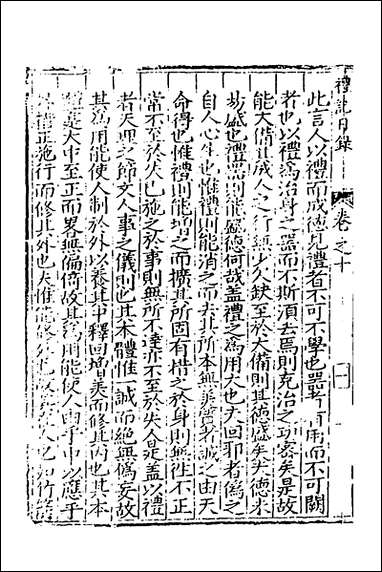 禮記日錄
卷之十
一
此言人以禮而成德見禮者不可不學也器者可用而不可闕
者也以禮為治身之器而不斯須去焉則克治之功密矣是故
能大備其成人之行無少欠缺至於大備則其德盛矣夫德未
易盛也禮器則能盛德何哉蓋禮之為用大也夫回耶者偽之
自人心生也惟禮則能消之而去其所本無美質者誠之由天
命得也惟禮則能增之而擴其所固有措之於身則無徃不正
當不至於失己施之於事則無所不達亦不至於失人是蓋以禮
者天理之節文人事之儀則也其本體惟一誠而絕無偽妄故
其為用能使人制於外以養其中釋回增美而修其內也其本
體至大中至正而畧無偏倚故其為用能使人由乎中以應乎
外措正施行而修其外也夫惟能修外也故其在人也如竹箭